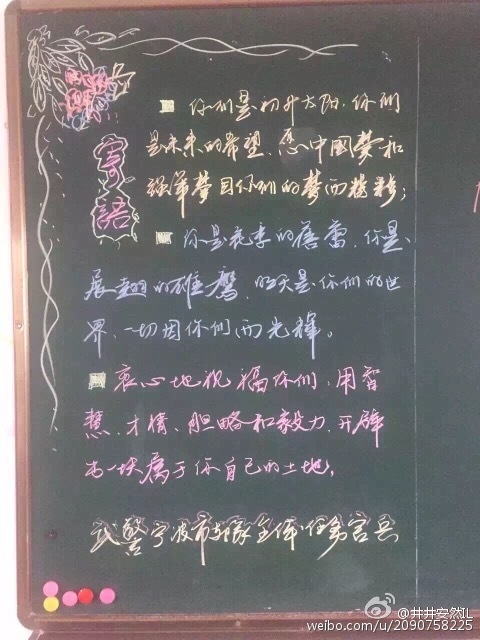 寄語
你们是初升太阳，你们
是未来的希望，愿中国梦和
强军梦因你们的梦而精彩；
你是花季的蓓蕾，你是
展翅的雄鹰，明天是你们的世
界，一切因你们而光辉。
衷心地祝福你们，用智
慧、才情、胆略和毅力，开辟
出一块属于你自己的土地。
武警宁波市支队全体官兵
@井井安然JL
weibo.com/u/2090758225